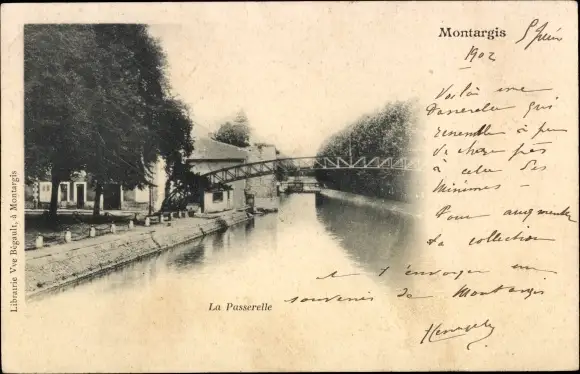 Montargis
5 Juin
1902
Voilà une
Passerelle qui
ressemble à peu
de chose près
à celle des
Minimes -
Pour augmenter
ta collection
et t'envoyer un
souvenir de Montargis
La Passerelle
Librairie Vve Bégault, à Montargis